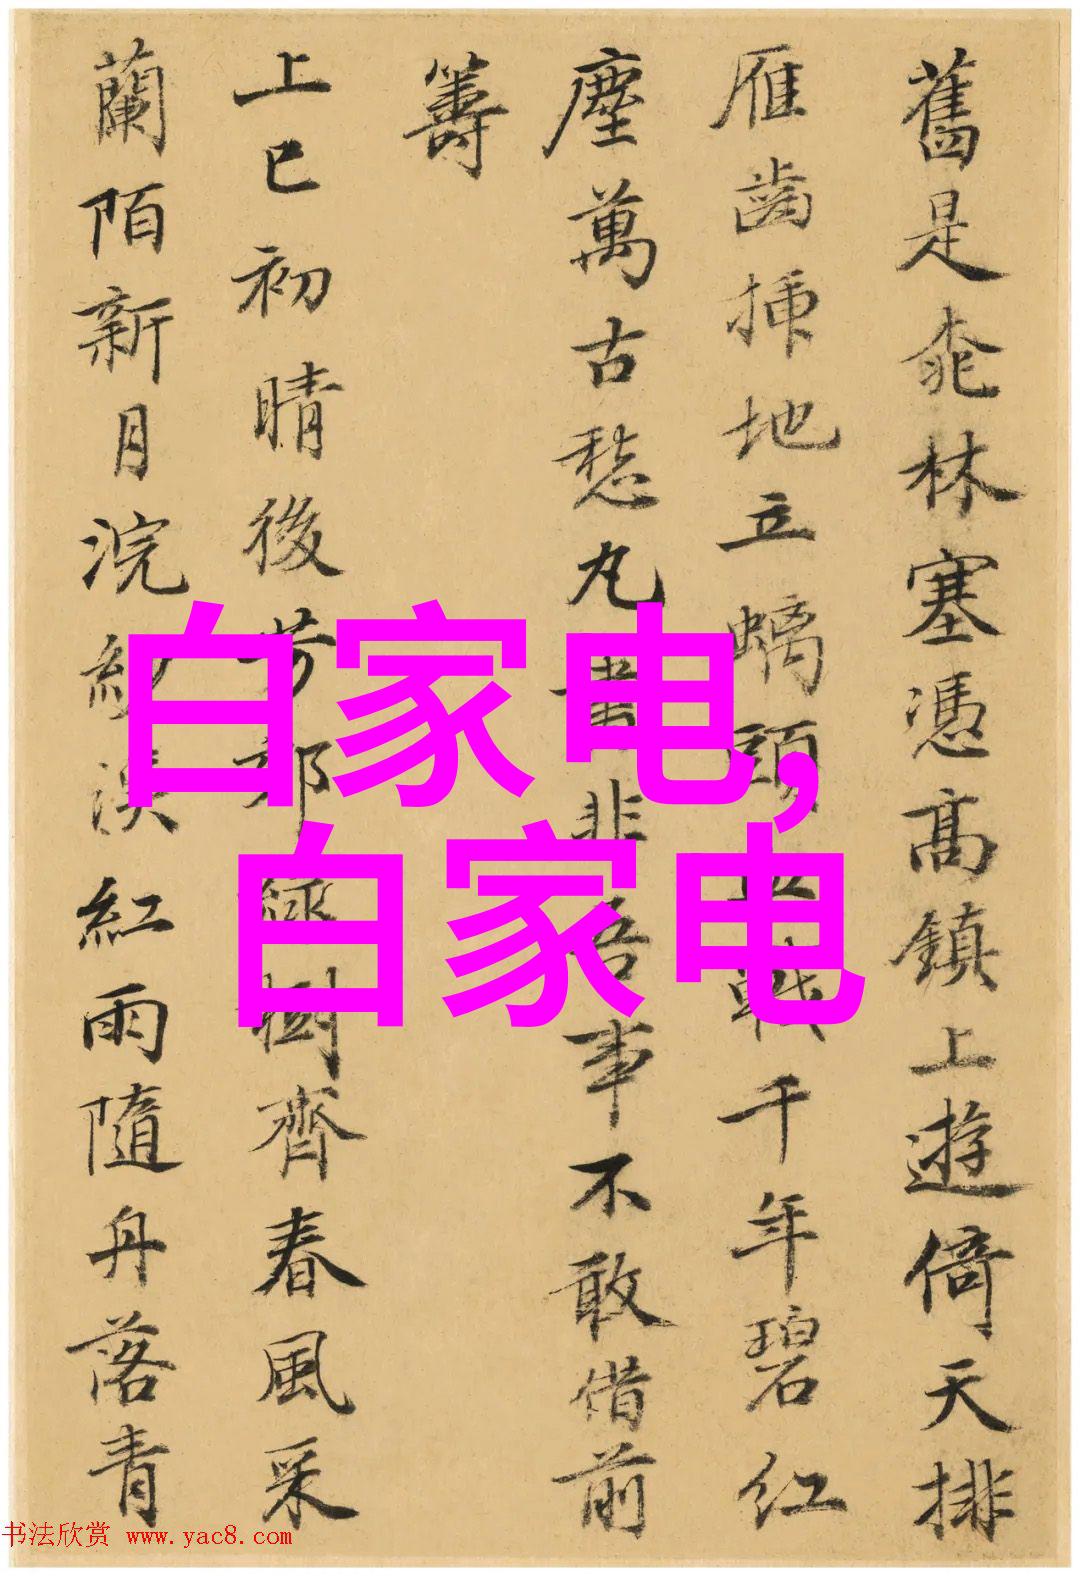 舊是桃林塞憑高鎮上遊倚天排
雁齒插地立螭頭戰千年碧紅
塵萬古愁丸書非吾事不敢借前
籌
上巳初晴後芳郊綠樹齊春風采
蘭陌新月浣紗溪紅雨隨丹落青
白家电,
白家电
书法欣赏 www.yac8.com